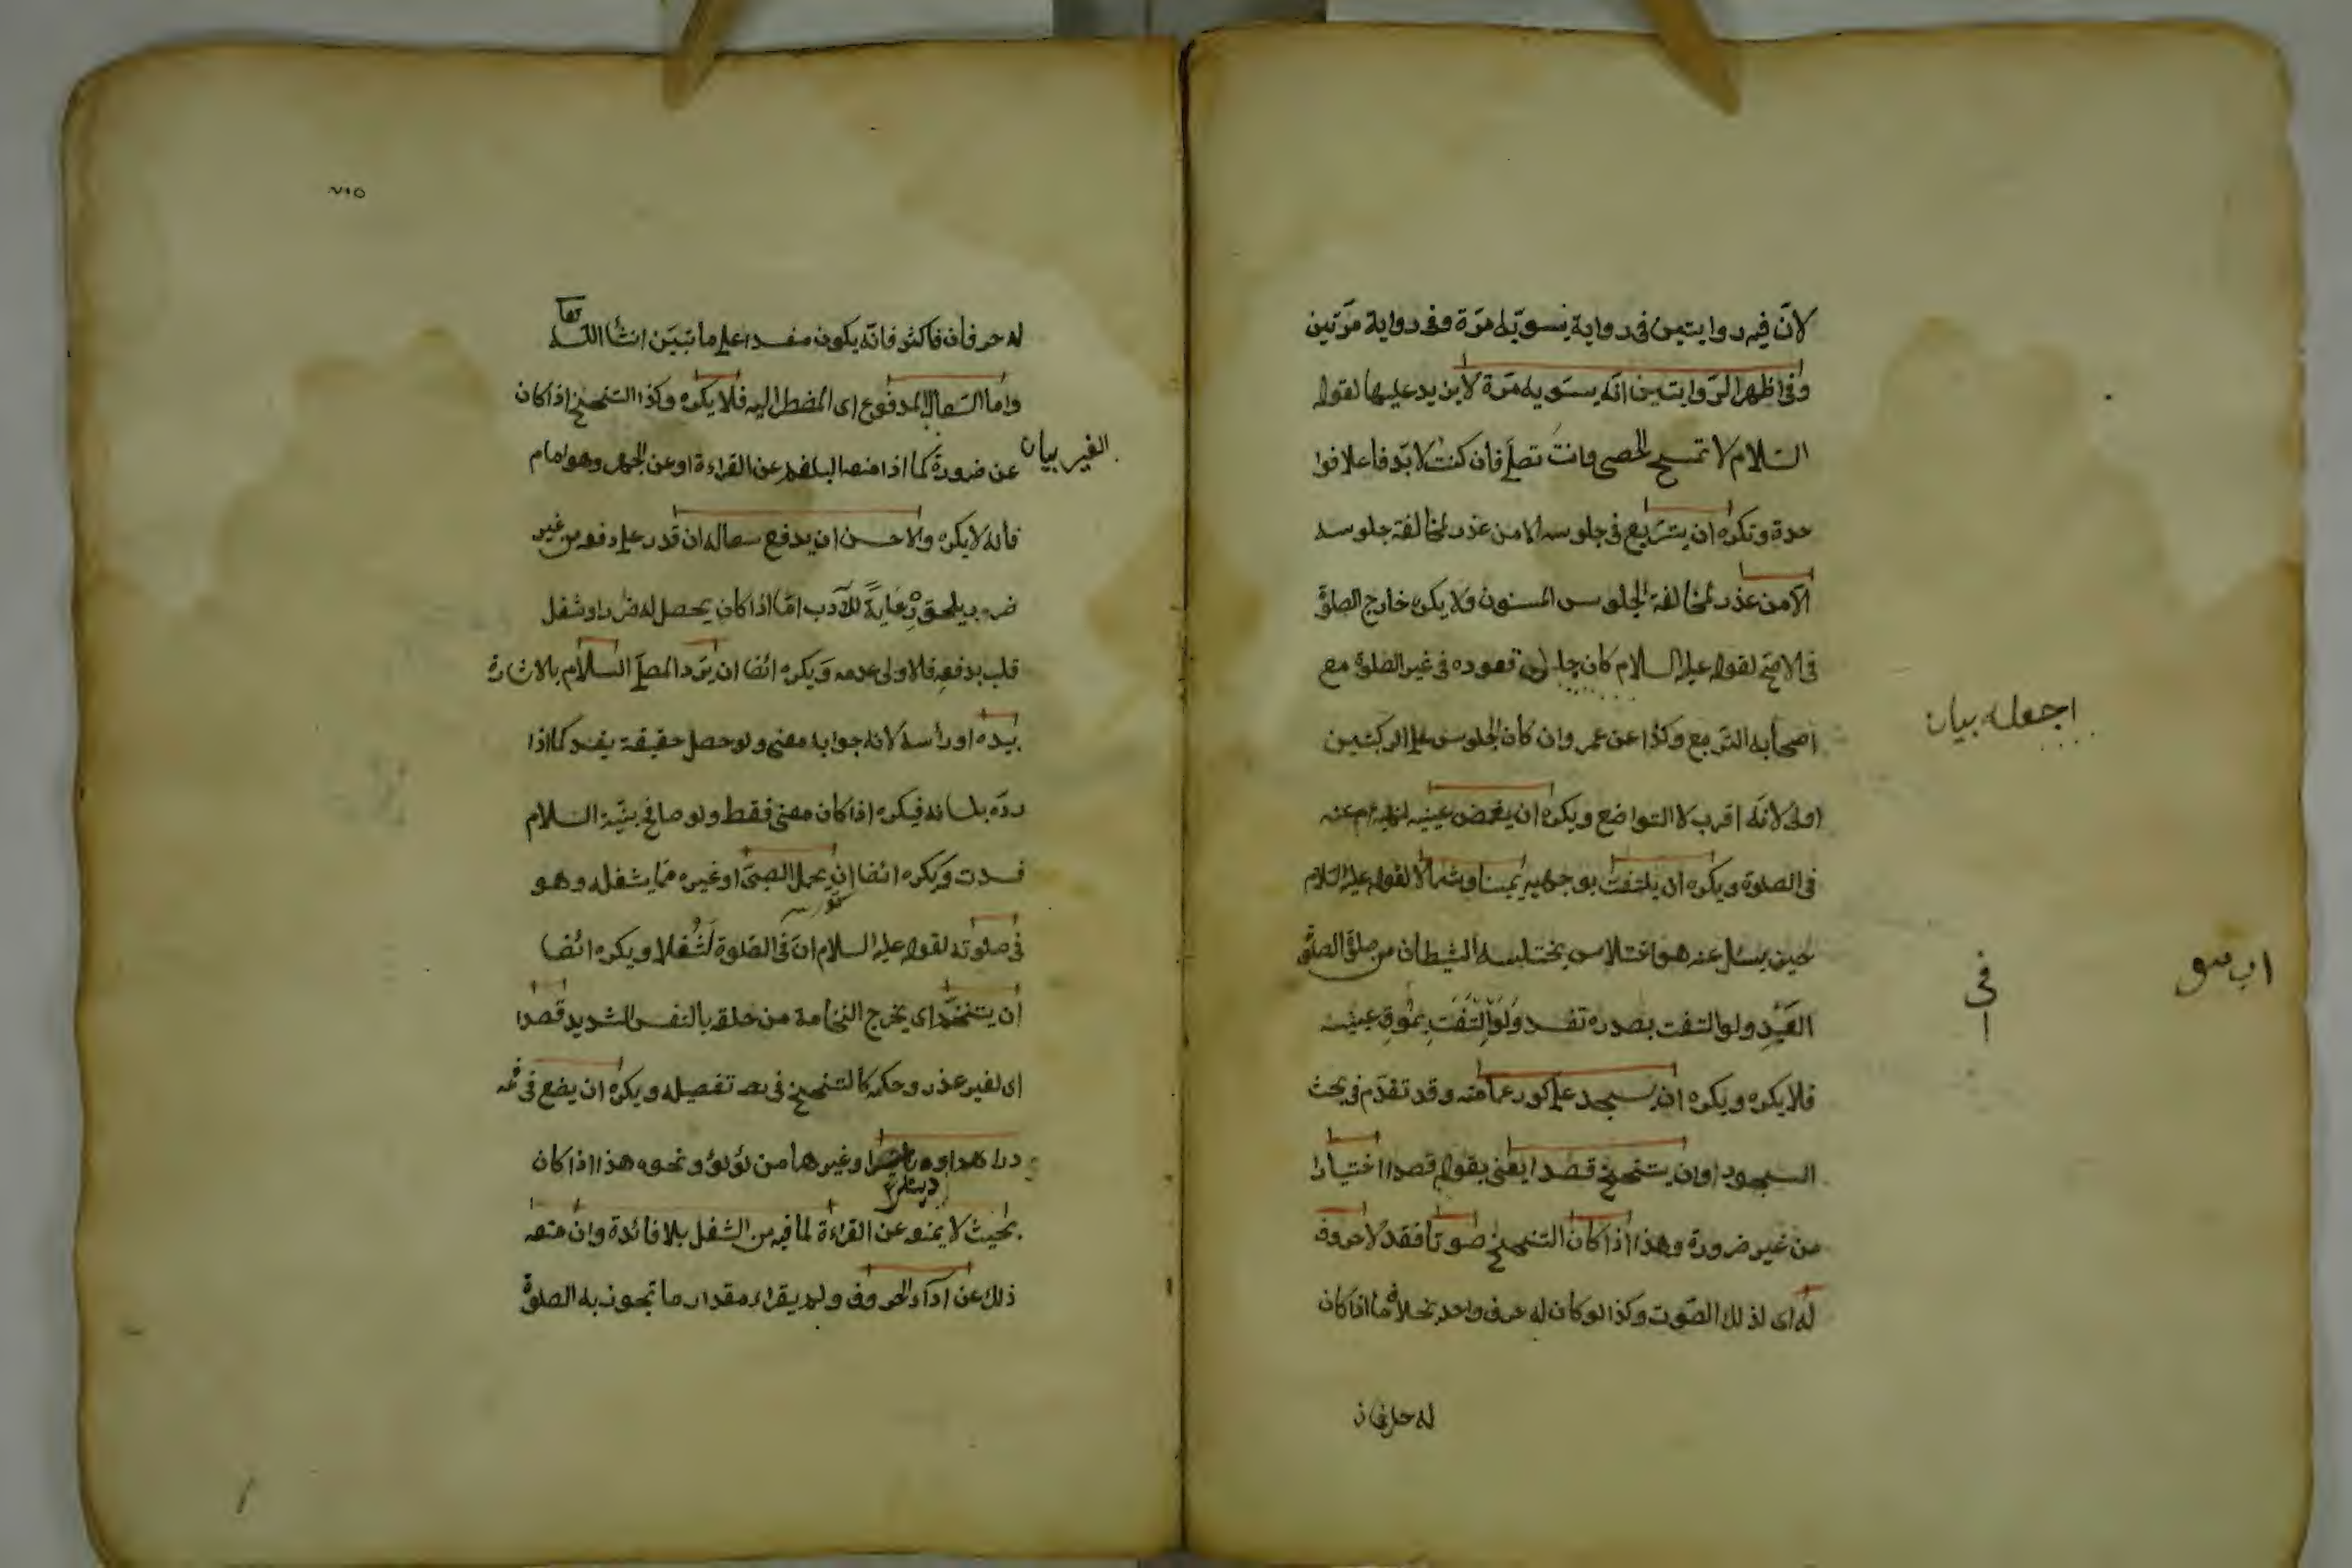 لانّ فيه روايتين فى رواية يسوّيه مرّة وفى رواية مرّتين
وفى اظهر الرّوايتين انّه يسوّيه مرّة لا يزيد عليها لقوله
السّلام لا تمسح الحصى وانتَ تصلّى فان كنت لا بدّ فاعلا فوا
حدة وتكره ان يتربع فى جلوسه الا من عذر لمخالفة جلوسه
الّا من عذر لمخالفة الجلوس المسنون ولا يكره خارج الصلوة
فى الاصحّ لقوله عليه السلام كان جل قعوده فى غير الصلوة مع
اجعله بيان
اصحابه التربع وكذا عن عمر وان كان الجلوس على الركبتين
اولى لانّه اقرب لا التواضع ويكره ان يغمض عينيه لنهيه عم عنه
فى الصلوة ويكره ان يلتفت بوجهه يمينا وشمالا لقوله عليه السّلام
حين يسئل عنه هو اختلاس يختلسه الشيطان من صلوة
فى
العَبْدِ ولو التفت بصدره تفسد وَلَوِ الْتَفَتَ بِمُوقِ عينيه
فلا يكره ويكره ان يسجد على كور عمامته وقد تقدّم فى بحث
السجود اوان يتنحنح قصدا يعنى بقوله قصدا اختيارا
من غير ضرورة وهذا اذا كان التنحنح صوتا فقد لا حروف
له اى لذلك الصّوت وكذا لو كان له حرف واحد بخلاف ما اذا كان
له حرفان
٧١٥
له حرفان فاكثر فانّه يكون مفسدا على ما تبيّن انشأ اللّه تعا
وامّا السّعال المدفوع اى المضطر اليه فلا يكره وكذا التنحنح اذا كان
الغير بيان
عن ضرورة كما اذا منعه البلغم عن القراءة او عن الجهر وهو امام
فانّه لا يكره والاحسن ان يدفع سعاله ان قدر على دفعه من غير
ضرر يلحق رِعَايَةً للآدب امّا اذا كان يحصل له ضرر او شغل
قلب بدفعه فالاولى عدمه ويكره ايضا ان يَرُد المصلّى السلام بالاشارة
بيده او رأسه لانه جوابه معنى ولو حصل حقيقة يفسد كما اذا
ردّه بلسانه فيكره اذا كان معنى فقط ولو صافح بنيّة السلام
فسدت ويكره ايضا ان يحمل الصبىّ او غيره ممّا يشغله وهو
فى صلوته لقوله عليه السلام انّ فى الصّلوة لَشُغلا ويكره ايضا
ان يتنخّم اى يخرج النخامة من حلقه بالنفس الشديد قصدا
اى لغير عذر وحكمه كالتنحنح فى تفصيله ويكره ان يضع فى فمه
دراهم او دينارا وغيرها من لؤلؤ ونحوه هذا اذا كان
بحيث لا يمنعه عن القراءة لما فيه من الشغل بلا فائدة وان منعه
ذلك عن ادآء الحروف ولم يقراء مقدار ما تجوز به الصلوة